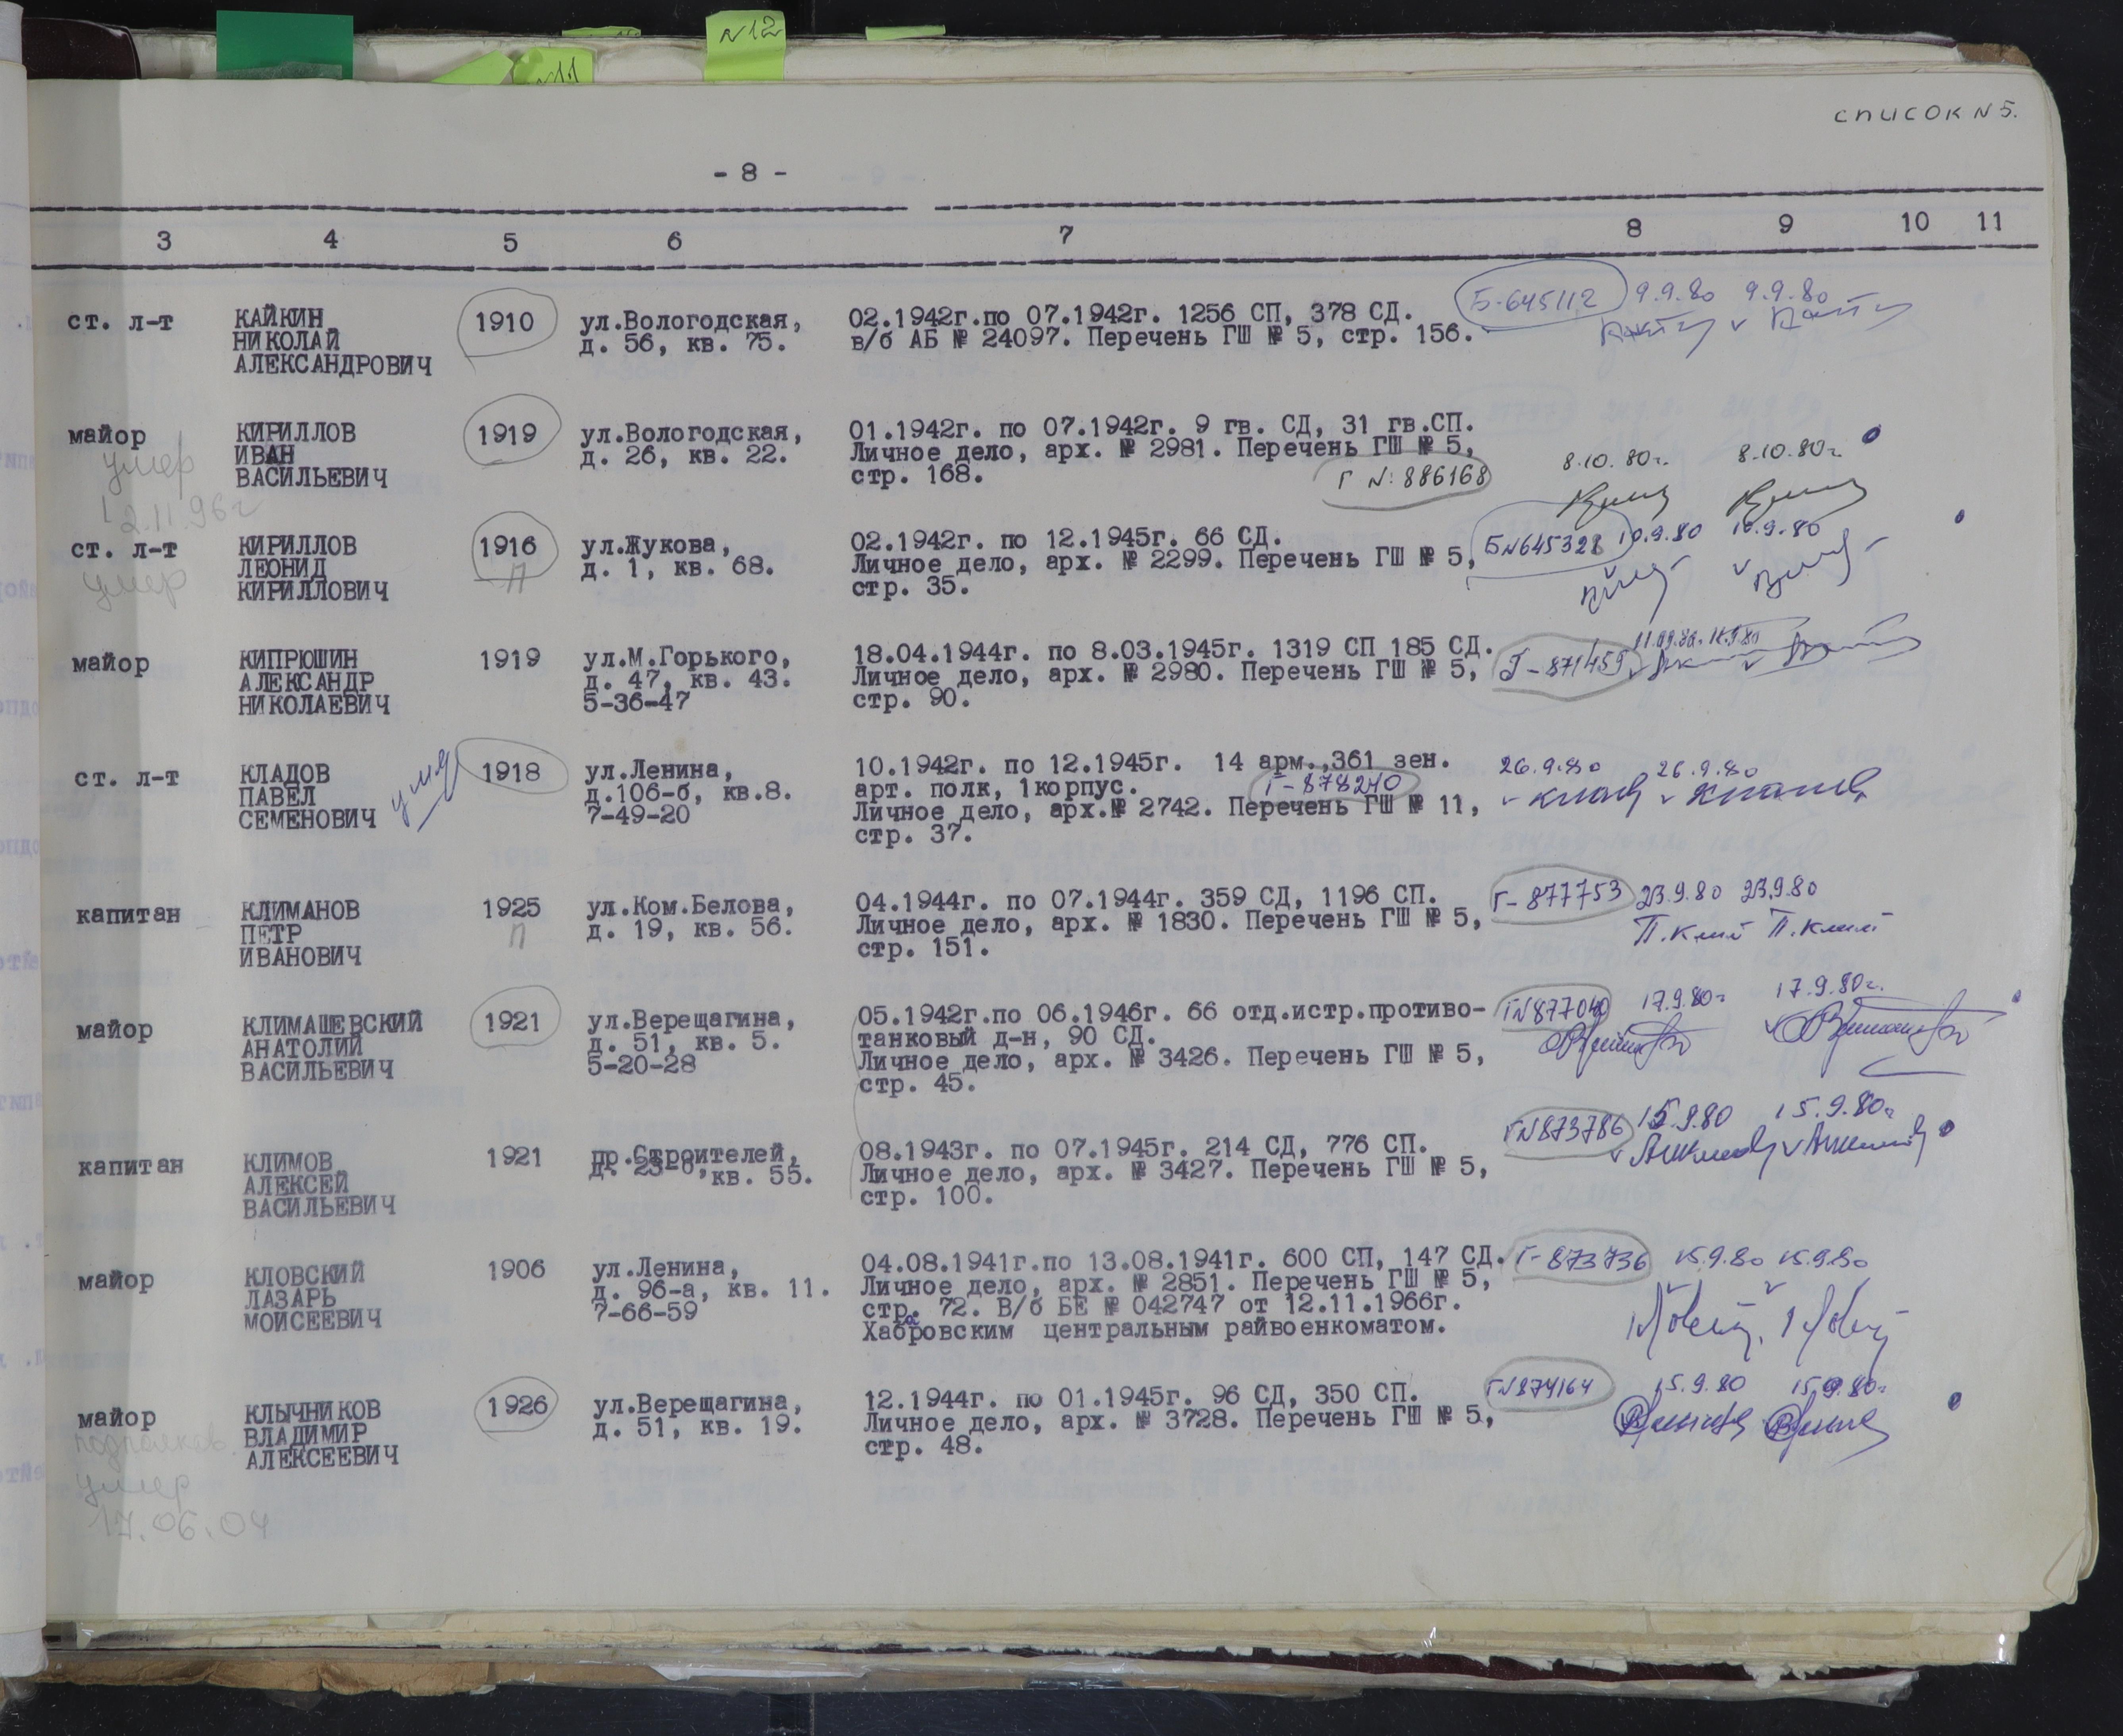 N12
СПИСОК N 5.
- 8 -
3 4 5 6 7 8 9 10 11
ст. л-т КАЙКИН 1910 ул.Вологодская, 02.1942г.по 07.1942г. 1256 СП, 378 СД. Б-645112 9.9.80 9.9.80
НИКОЛАЙ д. 56, кв. 75. в/б АБ № 24097. Перечень ГШ № 5, стр. 156.
АЛЕКСАНДРОВИЧ
майор КИРИЛЛОВ 1919 ул.Вологодская, 01.1942г. по 07.1942г. 9 гв. СД, 31 гв.СП.
умер ИВАН д. 26, кв. 22. Личное дело, арх. № 2981. Перечень ГШ № 5, 8.10.80г. 8.10.80г.
12.11.96г ВАСИЛЬЕВИЧ стр. 168. Г N: 886168
ст. л-т КИРИЛЛОВ 1916 ул.Жукова, 02.1942г. по 12.1945г. 66 СД. БN645328 10.9.80 10.9.80
умер ЛЕОНИД П д. 1, кв. 68. Личное дело, арх. № 2299. Перечень ГШ № 5,
КИРИЛЛОВИЧ стр. 35.
майор КИПРЮШИН 1919 ул.М.Горького, 18.04.1944г. по 8.03.1945г. 1319 СП 185 СД. Г-871459 11.09.80. 11.9.80
АЛЕКСАНДР д. 47, кв. 43. Личное дело, арх. № 2980. Перечень ГШ № 5,
НИКОЛАЕВИЧ 5-36-47 стр. 90.
ст. л-т КЛАДОВ 1918 ул.Ленина, 10.1942г. по 12.1945г. 14 арм.,361 зен. 26.9.80 26.9.80
ПАВЕЛ д.106-б, кв.8. арт. полк, 1корпус. Г-878240
СЕМЕНОВИЧ 7-49-20 Личное дело, арх.№ 2742. Перечень ГШ № 11,
стр. 37.
капитан КЛИМАНОВ 1925 ул.Ком.Белова, 04.1944г. по 07.1944г. 359 СД, 1196 СП. Г-877753 23.9.80 23.9.80
ПЕТР П д. 19, кв. 56. Личное дело, арх. № 1830. Перечень ГШ № 5, П.Клим П.Клим
ИВАНОВИЧ стр. 151.
майор КЛИМАШЕВСКИЙ 1921 ул.Верещагина, 05.1942г.по 06.1946г. 66 отд.истр.противо- ГN877040 17.9.80г 17.9.80г.
АНАТОЛИЙ д. 51, кв. 5. танковый д-н, 90 СД.
ВАСИЛЬЕВИЧ 5-20-28 Личное дело, арх. № 3426. Перечень ГШ № 5,
стр. 45.
капитан КЛИМОВ 1921 пр.Строителей, 08.1943г. по 07.1945г. 214 СД, 776 СП. ГN873786 15.9.80 15.9.80г
АЛЕКСЕЙ д. 23-б, кв. 55. Личное дело, арх. № 3427. Перечень ГШ № 5,
ВАСИЛЬЕВИЧ стр. 100.
майор КЛОВСКИЙ 1906 ул.Ленина, 04.08.1941г.по 13.08.1941г. 600 СП, 147 СД. Г-873736 15.9.80 15.9.80
ЛАЗАРЬ д. 96-а, кв. 11. Личное дело, арх. № 2851. Перечень ГШ № 5,
МОИСЕЕВИЧ 7-66-59 стр. 72. В/б БЕ № 042747 от 12.11.1966г.
Хабаровским центральным райвоенкоматом.
майор КЛЫЧНИКОВ 1926 ул.Верещагина, 12.1944г. по 01.1945г. 96 СД, 350 СП. ГN874164 15.9.80 15.9.80г
подполков. ВЛАДИМИР д. 51, кв. 19. Личное дело, арх. № 3728. Перечень ГШ № 5,
умер АЛЕКСЕЕВИЧ стр. 48.
17.06.04